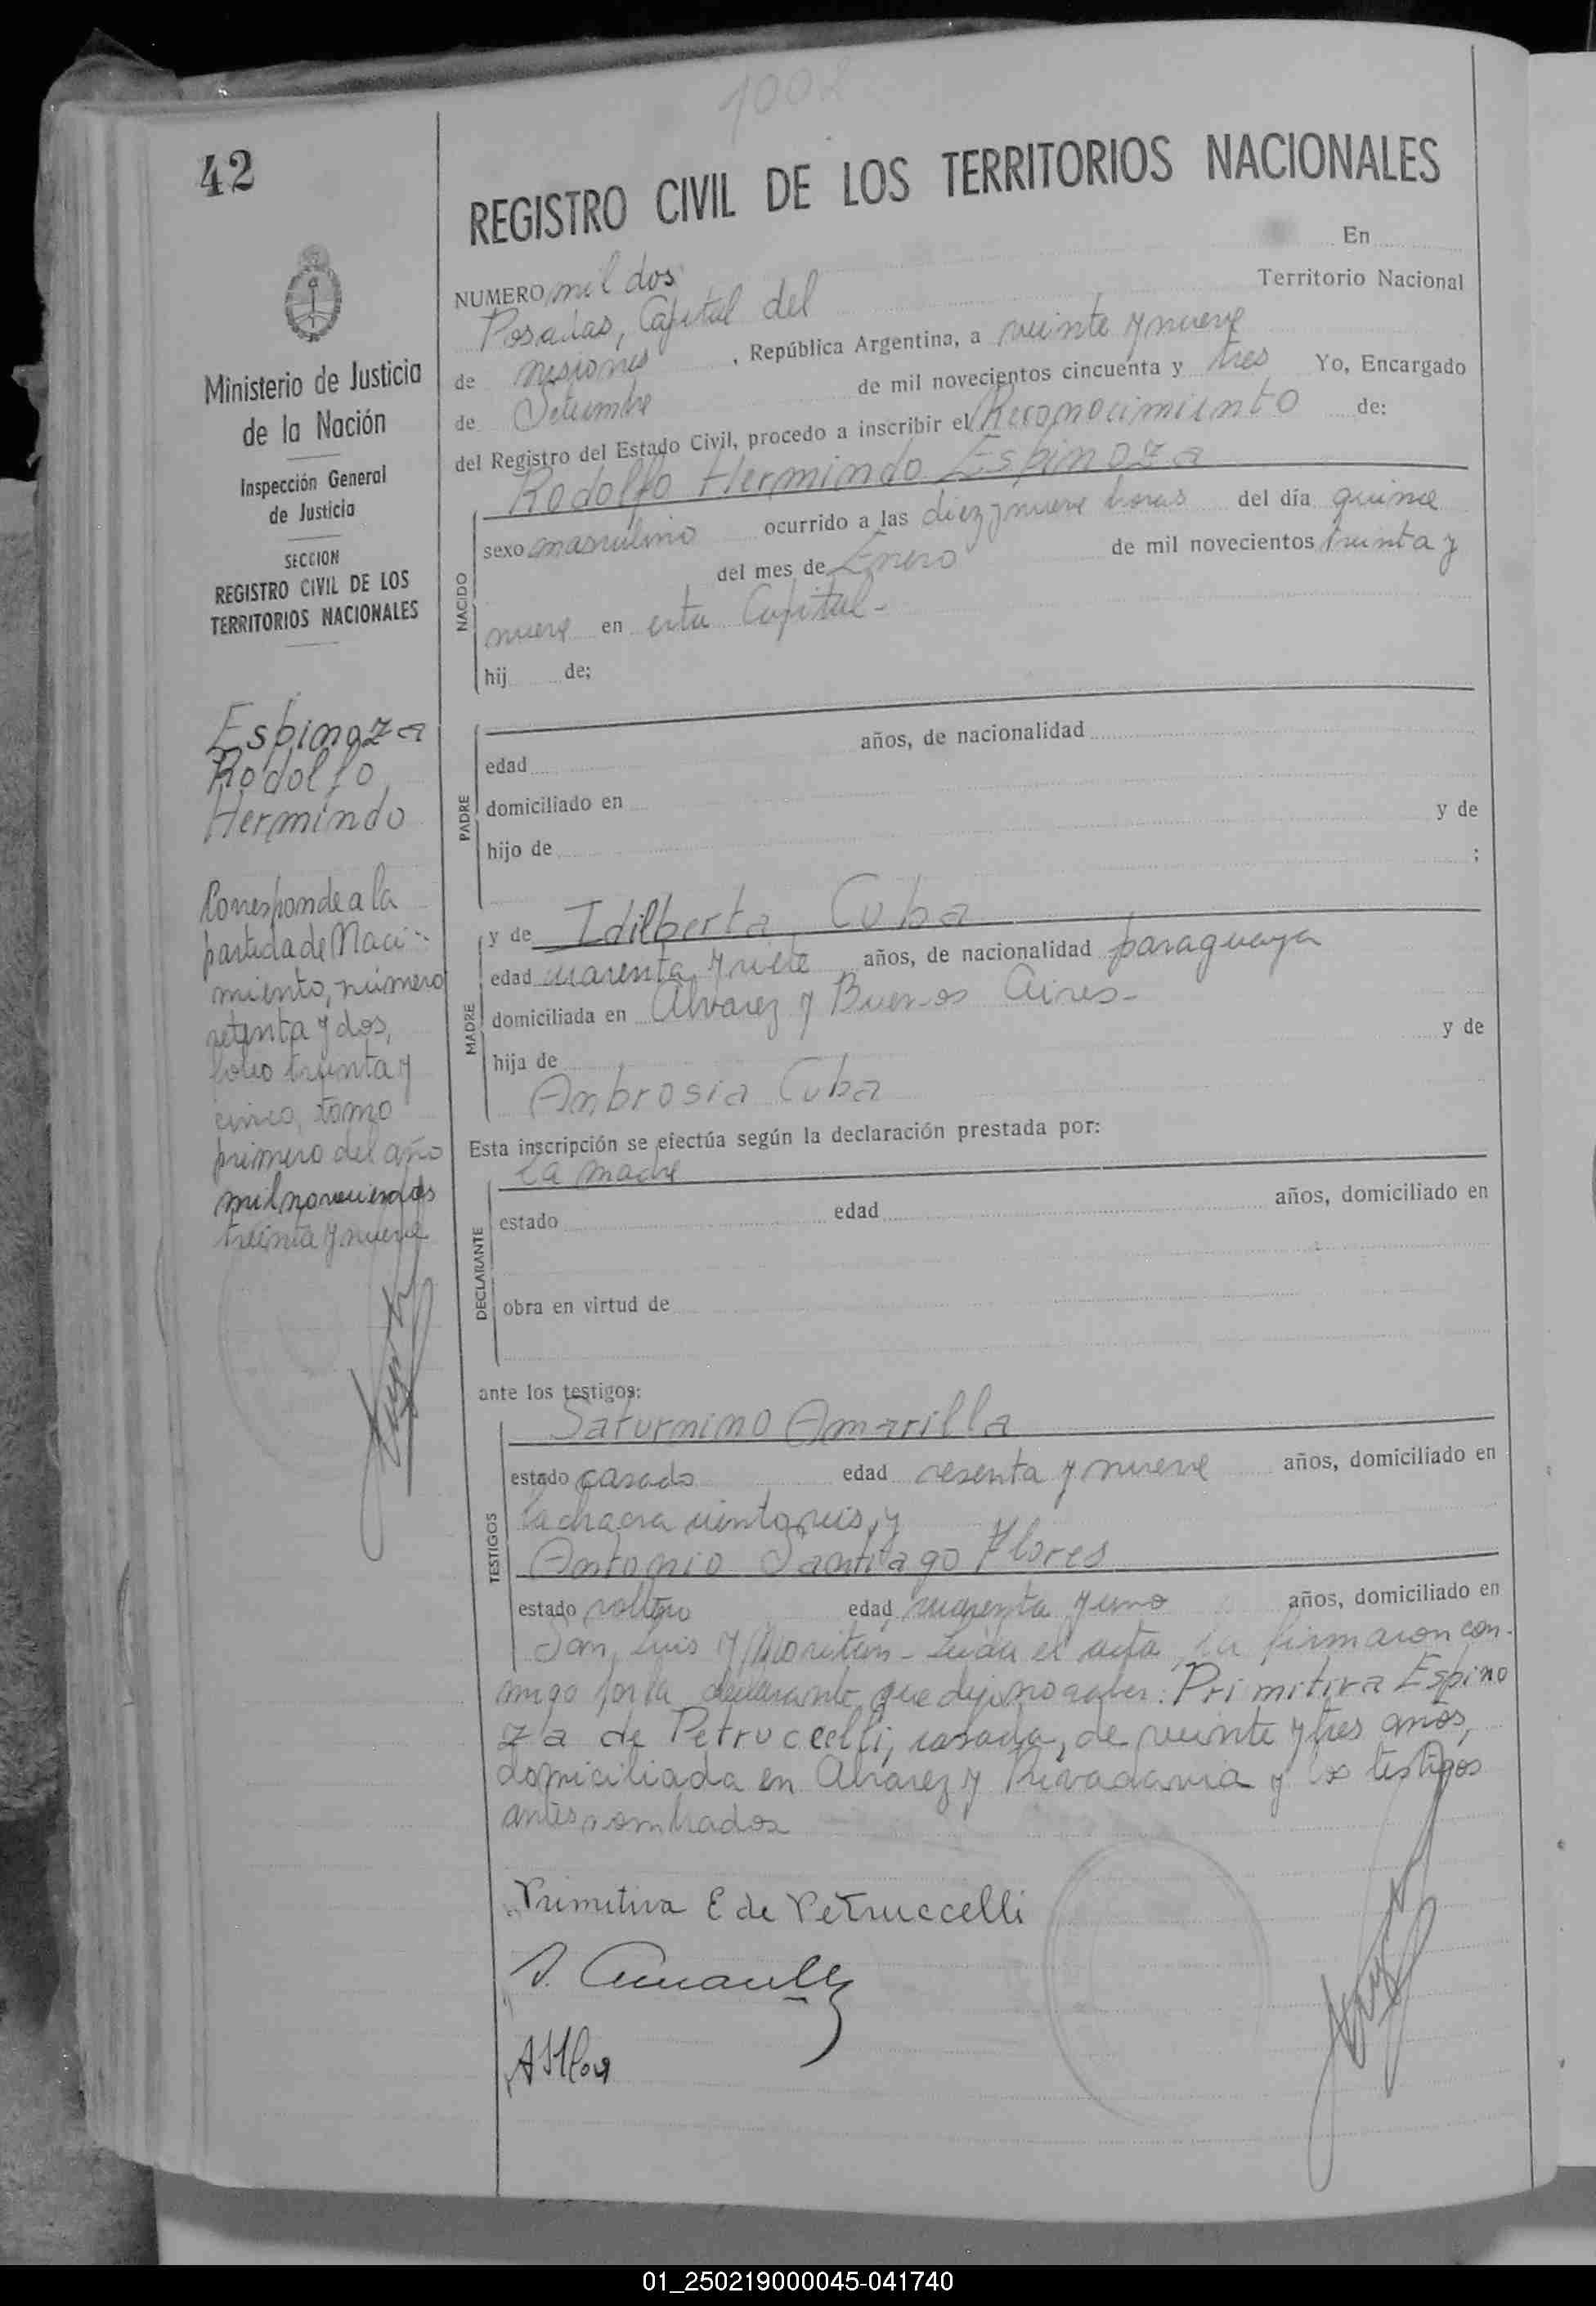 1002
42
REGISTRO CIVIL DE LOS TERRITORIOS NACIONALES
En
NUMERO mil dos
Territorio Nacional
Posadas, Capital del
de Misiones, República Argentina, a veinte y nueve
de Setiembre de mil novecientos cincuenta y tres Yo, Encargado
del Registro del Estado Civil, procedo a inscribir el Reconocimiento de:
Rodolfo Hermindo Espinoza
NACIDO
sexo masculino ocurrido a las diez y nueve horas del día quince
del mes de Enero de mil novecientos treinta y
nueve en esta Capital-
hij de;
PADRE
edad años, de nacionalidad
domiciliado en
hijo de y de
;
MADRE
y de Idilberta Cuba
edad cuarenta y siete años, de nacionalidad paraguaya
domiciliada en Alvarez y Buenos Aires-
hija de y de
Ambrosia Cuba
Esta inscripción se efectúa según la declaración prestada por:
La madre
DECLARANTE
estado edad años, domiciliado en
obra en virtud de
ante los testigos:
Saturnino Amarilla
TESTIGOS
estado casado edad sesenta y nueve años, domiciliado en
la chacra ciento seis, y
Antonio Santiago Flores
estado soltero edad cuarenta y uno años, domiciliado en
San Luis y - Leída el acta, la firmaron con-
migo por la declarante que dijo no saber: Primitiva Espino
za de Petruccelli, casada, de veinte y tres años,
domiciliada en Alvarez y Rivadavia y los testigos
antes nombrados
Primitiva E de Petruccelli
S. Amarilla
ASFlores
Ministerio de Justicia
de la Nación
Inspección General
de Justicia
SECCION
REGISTRO CIVIL DE LOS
TERRITORIOS NACIONALES
Espinoza
Rodolfo
Hermindo
Corresponde a la
partida de Naci-
miento, número
setenta y dos,
folio treinta y
cinco, tomo
primero del año
mil novecientos
treinta y nueve
01_250219000045-041740